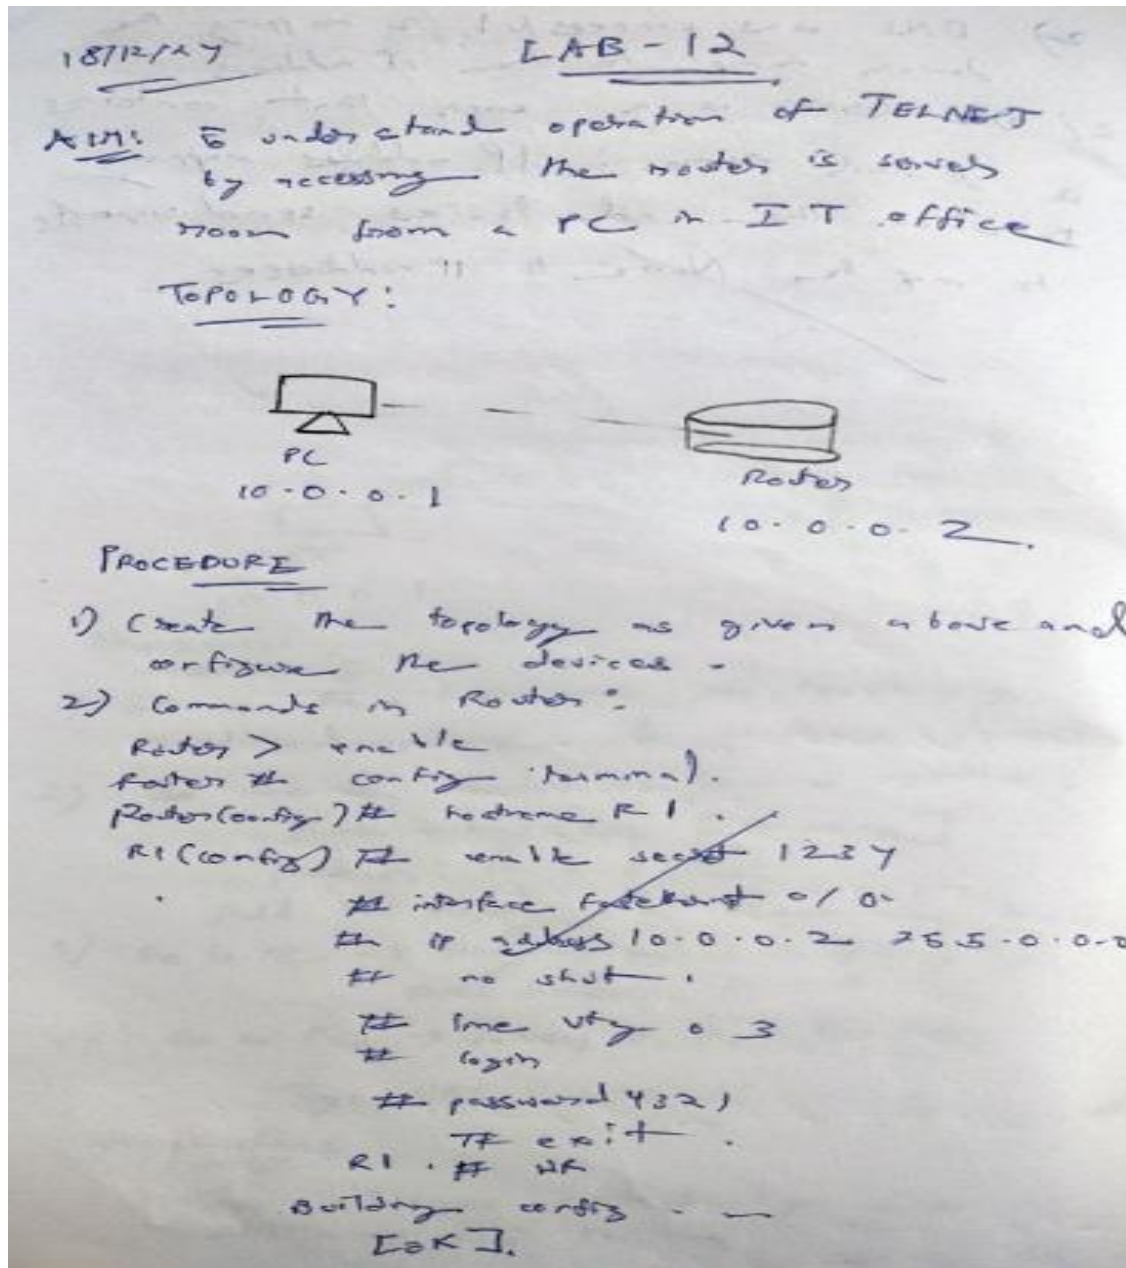 18/12/24
LAB-12
AIM: To understand operation of TELNET
by accessing the router is server
room from a PC in IT office
TOPOLOGY:
PC
10.0.0.1
Router
10.0.0.2.
PROCEDURE
1) Create the topology as given above and
configure the devices.
2) Commands in Router:
Router > enable
Router # config terminal.
Router(config)# hostname R1.
R1(config)# enable secret 1234
# interface fastethernet 0/0.
# ip address 10.0.0.2 255.0.0.0
# no shut.
# line vty 0 3
# login
# password 4321
# exit.
R1. # WR
Building config...
[OK].